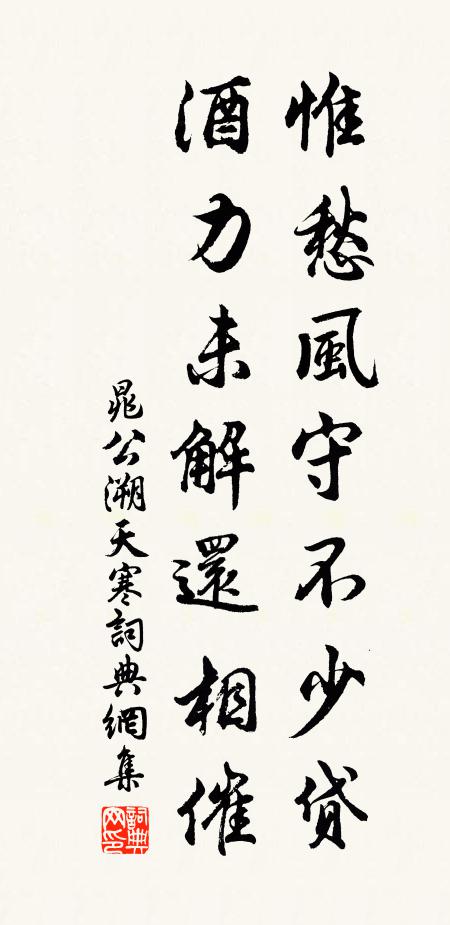 惟愁風守不少貸
酒力未解還相催
晁公溯天寒詞典網集
詞典網印